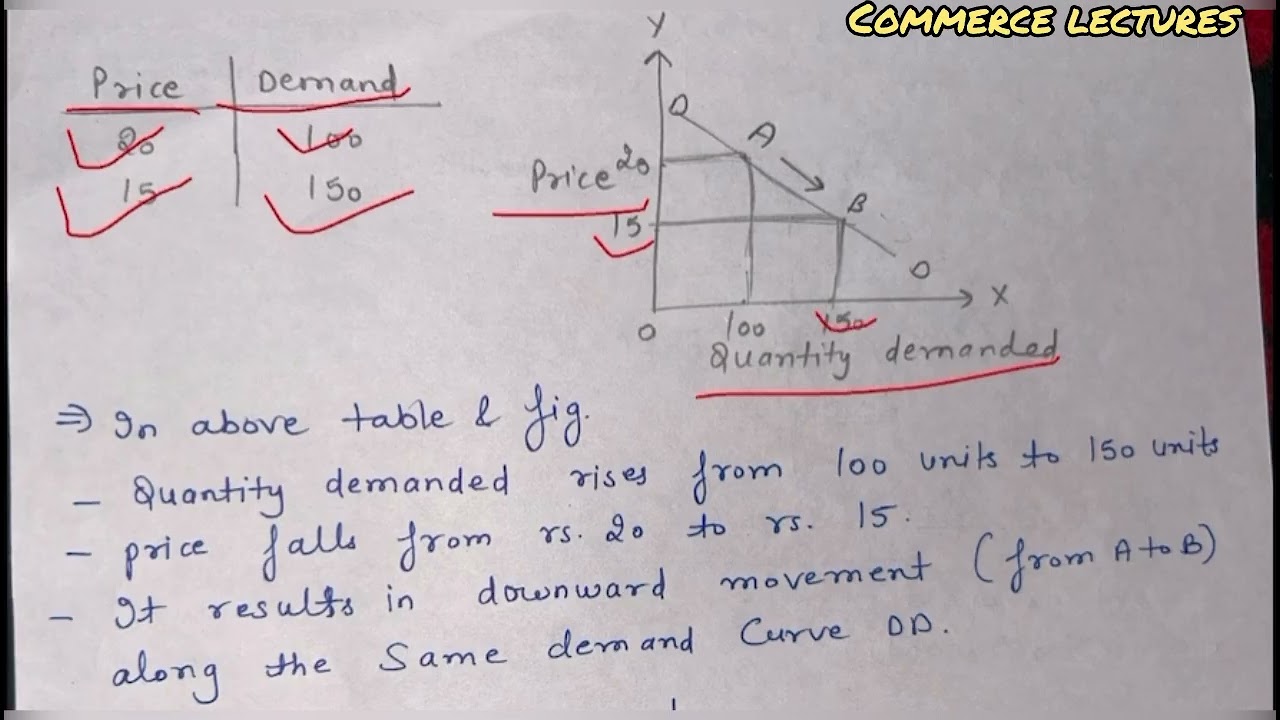 COMMERCE LECTURES
Price Demand
20 100
15 150
Y
D
A
Price 20
B
15
D
X
O 100 150
Quantity demanded
⇒ In above table & fig.
- Quantity demanded rises from 100 units to 150 units
- price falls from rs. 20 to rs. 15.
- It results in downward movement (from A to B)
along the Same demand Curve DD.